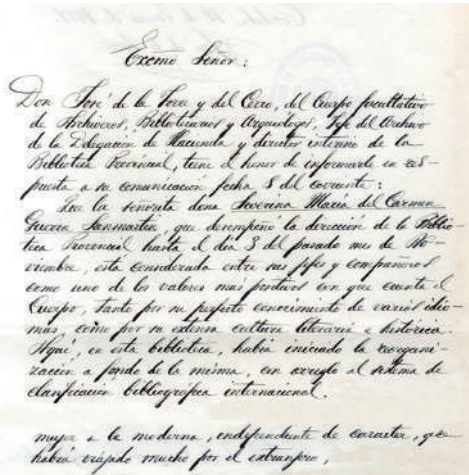 Excmo Señor:
Don José de la Torre y del Cerro, del Cuerpo facultativo
de Archiveros, Bibliotecarios y Arqueologos, Jefe del Archivo
de la Delegación de Hacienda y director interino de la
Biblioteca Provincial, tiene el honor de informarle en res-
puesta a su comunicación fecha 8 del corriente:
Que la señorita doña Severina Maria del Carmen
Guerra Sanmartin, que desempeñó la dirección de la Biblio-
teca Provincial hasta el dia 3 del pasado mes de No-
viembre, está considerada entre sus jefes y compañeros
como uno de los valores mas positivos con que cuenta el
Cuerpo, tanto por su perfecto conocimiento de varios idio-
mas, como por su extensa cultura literaria e historica.
Aqui, en esta biblioteca, habia iniciado la reorgani-
zación a fondo de la misma, con arreglo al sistema de
clasificación bibliográfica internacional.
mujer a la moderna, independiente de caracter, que
habia viajado mucho por el extranjero,